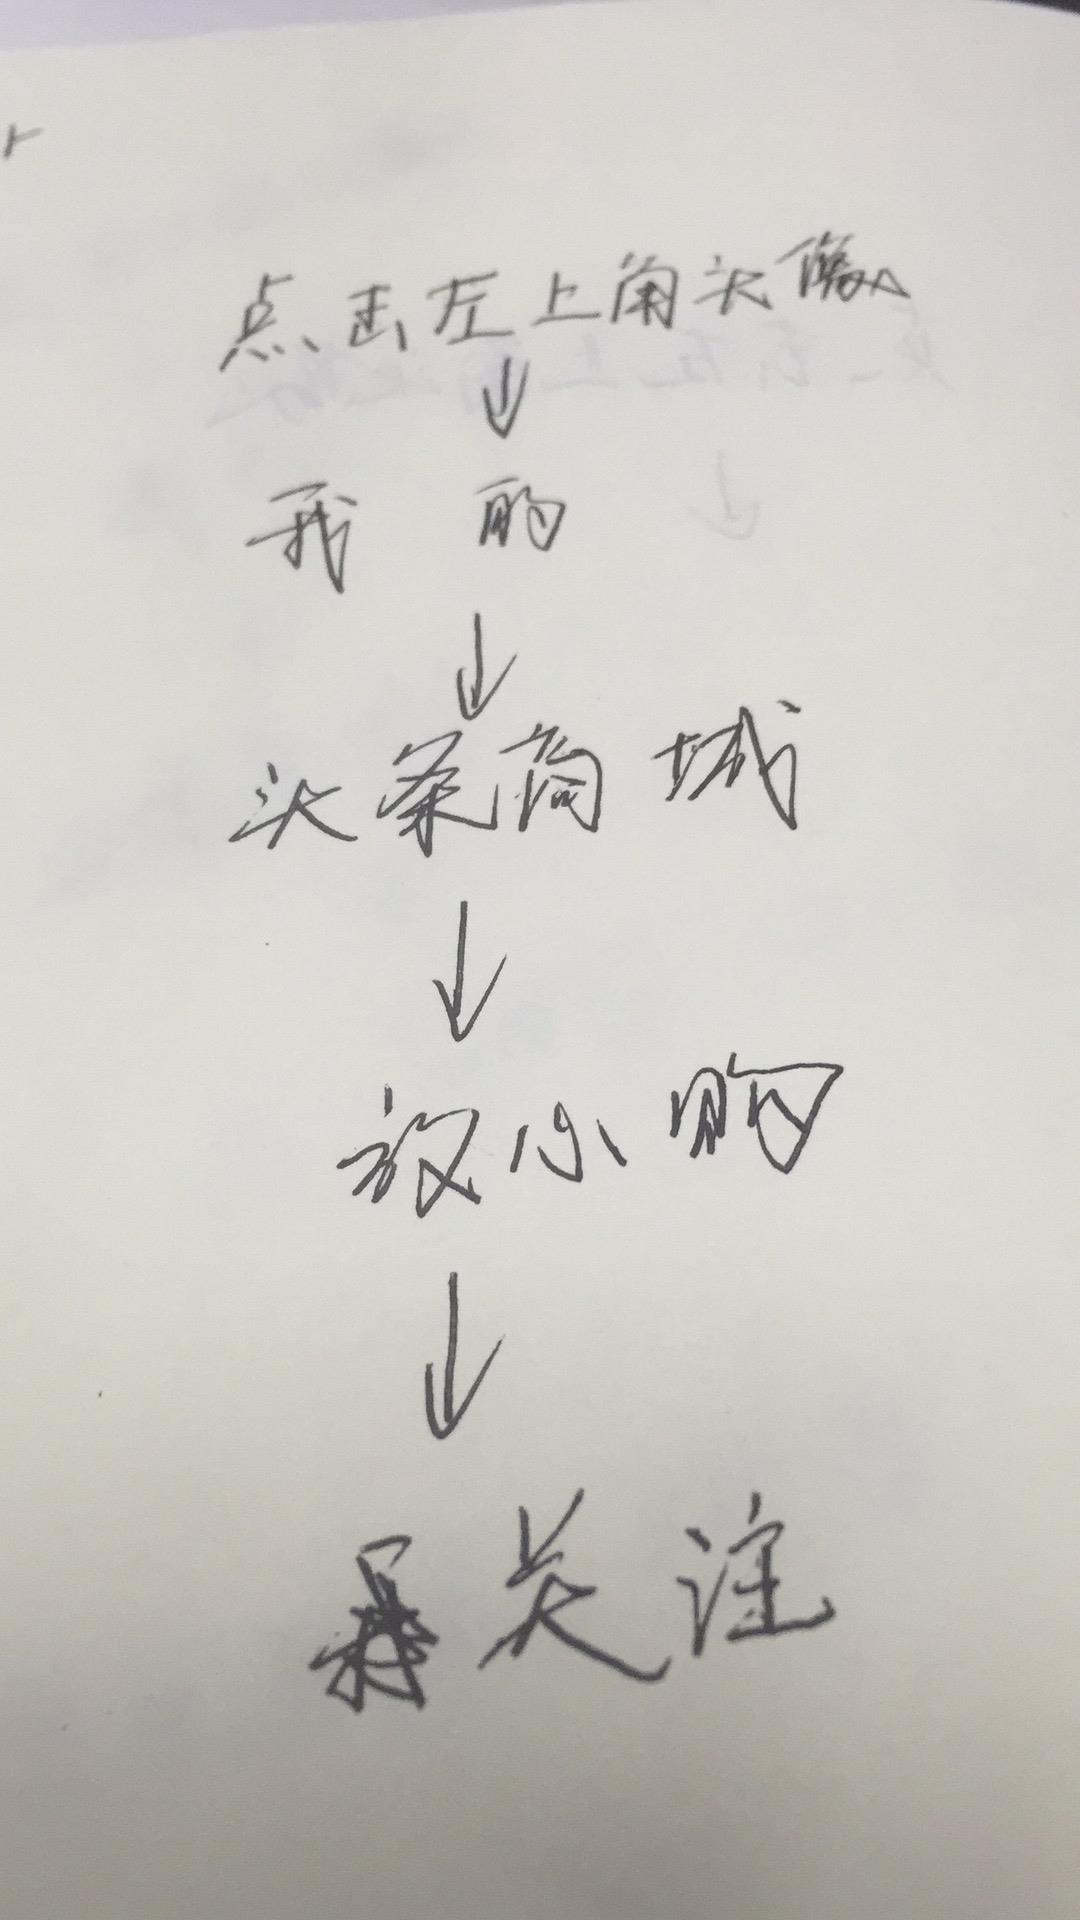 点击左上角头像
↓
我的
↓
头条商城
↓
放心购
↓
关注